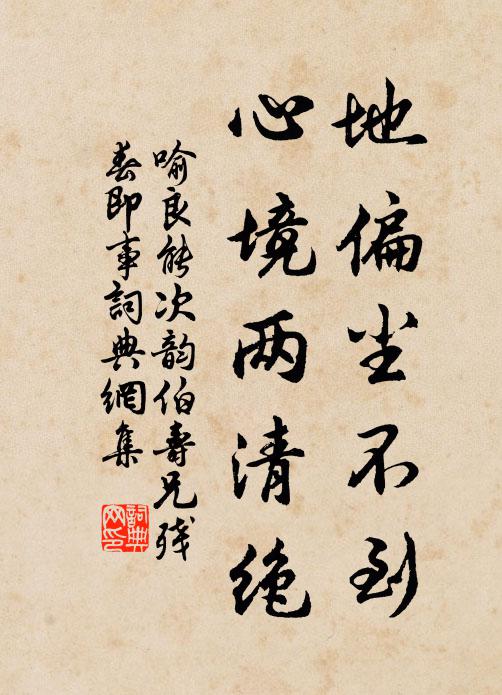 地偏尘不到
心境两清绝
喻良能次韵伯寿兄残
春即事词典網集
詞典网印